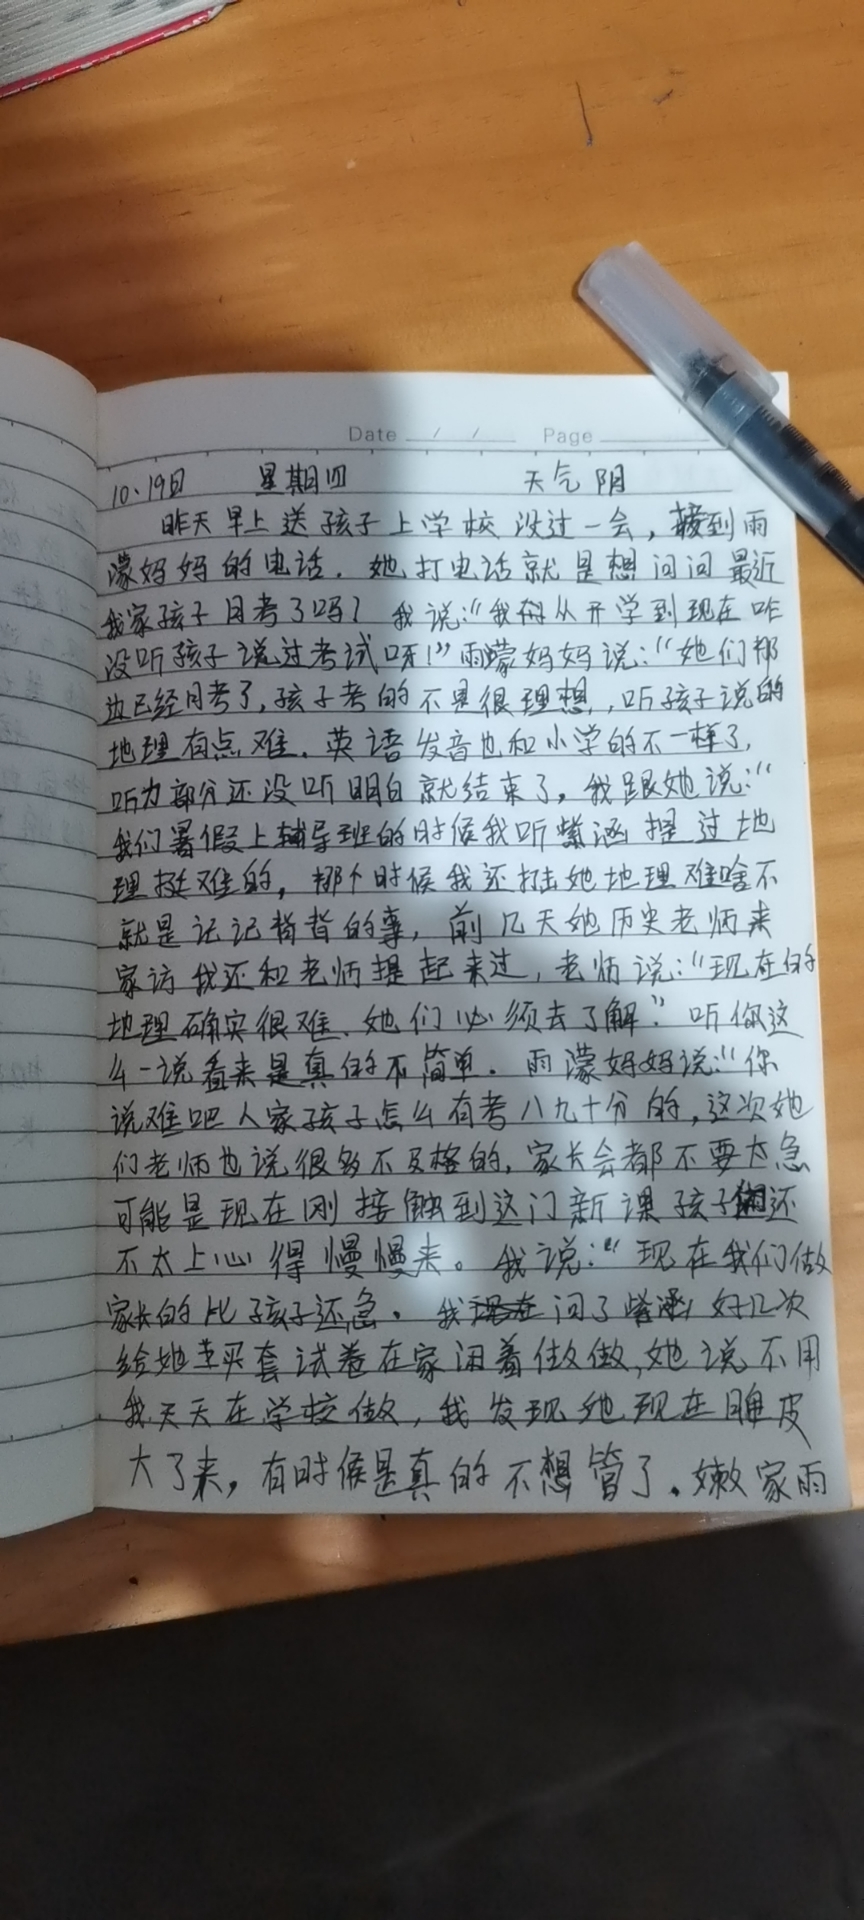 Date / / Page
10、19日 星期四 天气 阴
昨天早上送孩子上学校没过一会，接到雨
濛妈妈的电话。她打电话就是想问问最近
我家孩子月考了吗？我说：“我们从开学到现在咋
没听孩子说过考试呀！”雨濛妈妈说：“她们那
边已经月考了，孩子考的不是很理想，听孩子说的
地理有点难。英语发音也和小学的不一样了，
听力部分还没听明白就结束了。我跟她说：“
我们暑假上辅导班的时候我听紫涵提过地
理挺难的，那个时候我还打击她地理难啥不
就是记记背背的事，前几天她历史老师来
家访我还和老师提起来过，老师说：“现在的
地理确实很难、她们必须去了解”。听你这
么一说看来是真的不简单。雨濛妈妈说：“你
说难吧人家孩子怎么有考八九十分的，这次她
们老师也说很多不及格的，家长会都不要太急
可能是现在刚接触到这门新课孩子们还
不太上心得慢慢来。我说：“现在我们做
家长的比孩子还急。我问了紫涵好几次
给她买套试卷在家闲着做做，她说不用
我天天在学校做，我发现她现在脾皮
大了来，有时候是真的不想管了。嫩家雨